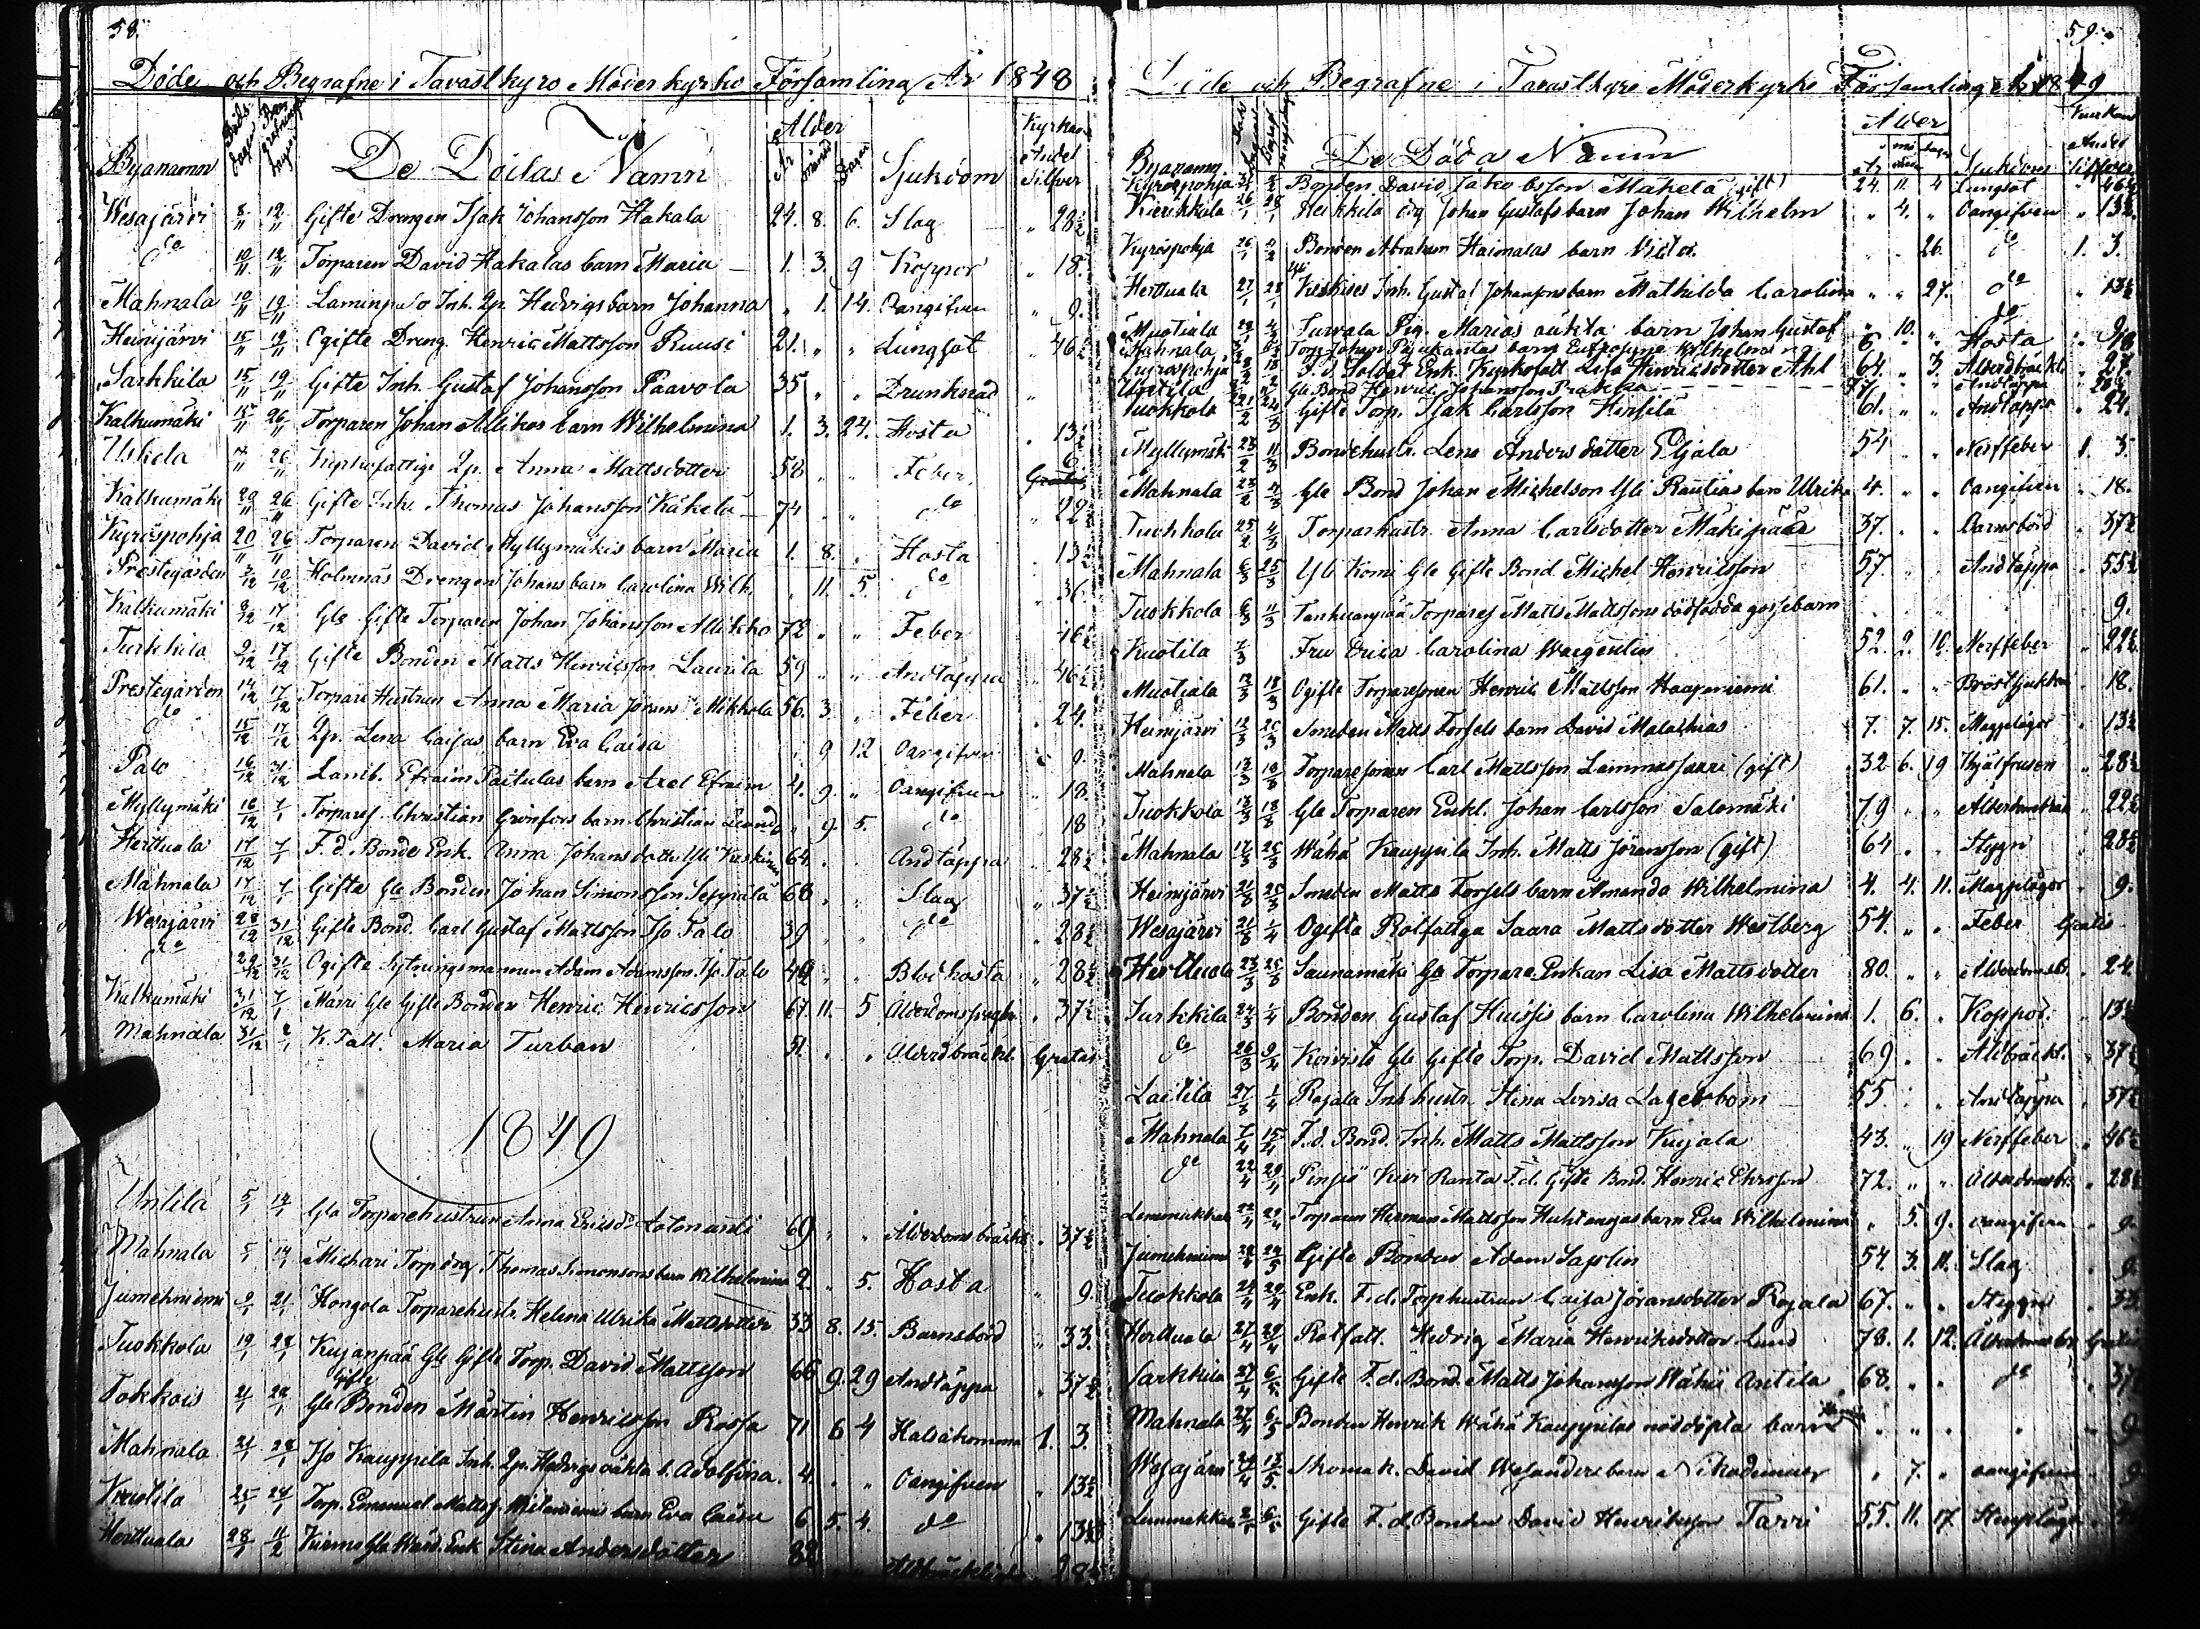 58.
Döde och Begrafne i Tavastkyro Moderkyrko Församling År 1848
Byanamn Döds dagen Begrafnings dagen De Dödas Namn Ålder År månad Dagar Sjukdom Kyrkans Andel Silfver
Wesajärvi 8/11 12/11 Gifte Drengen Isak Johansson Hakala 24. 8. 6. Slag " 28½
do 10/11 12/11 Torparen David Hakalas barn Maria 1. 3. 9 Koppor " 18.
Mahnala 10/11 19/11 Inh. Qp. Hedvigs barn Johanna " 1. 14. Oangifven " 9.
Heinijärvi 15/11 19/11 Ogifte Dreng. Henric Mattsson Ruusi 21. " " Lungsot " 46½
Sarkkila 15/11 19/11 Gifte Inh. Gustaf Johansson Paavola 35 " " Drunknad "
Kalkumäki 15/11 26/11 Torparen Johan Allikos barn Wilhelmina 1. 3. 24. Hosta " 13½
Uskela 26/11 Kyrkofattige Qp. Anna Mattsdotter 58 " " Feber 6
Kalkumäki 20/11 26/11 Gifte Inh. Thomas Johansson Käkelä 74 " " do " 22½
Kyröspohja 20/11 26/11 Torparen David Myllymäkis barn Maria 1. 8. " Hosta " 13½
Prestegården 3/12 10/12 Holmnäs Drengen Johans barn Carolina Wilh. " 11. 5. do " 36.
Kalkumäki 8/12 17/12 Gle Gifte Torparen Johan Johansson Allikko 72 " " Feber 16½
Turkkila 9/12 17/12 Gifte Bonden Matts Henricsson Laurila 59 " " Andtäppa " 46½
Prestegården 14/12 17/12 Torpare Hustrun Anna Maria Mikkola 56. 3. " Feber " 24.
do 15/12 17/12 Qp. Lena Caisas barn Eva Caisa " 9 12 Oangifven 9.
Palo 16/12 31/12 Efraim Paitulas barn Axel Efraim 4. 9. " Oangifven " 18.
Myllymäki 16/12 7/1 Torpares. Christian Grönfors barn Christian " 9. 5. do 18
Herttuala 17/12 7/1 F. d. Bonde Enk. Anna Johansdotter Yli Keskinen 64. " Andtäppa " 28½
Mahnala 17/12 7/1 Gifte Gla Bonden Johan Simonsson Seppälä 68 " " Slag " 37½
Wesajärvi 28/12 31/12 Gifte Bond. Carl Gustaf Mattsson Iso Talo 39 " " do " 28½
do 29/12 31/12 Ogifte Sytningsmannen Adam Adamsson Iso Talo 49 " " Blodhosta " 28½
Kalkumäki 31/12 7/1 Märri Gle Gifte Bonden Henric Henricsson 67. 11. 5 " 37½
Mahnala 31/12 K. Fatt. Maria Turban 51 " " Ålderdbräckl. Gratis
1849
Untila 5/1 14/1 Gla Torparehustrun Anna Ericsdr 69 " " Ålderdomsbräckl. " 37½
Mahnala 5/1 14/1 Michari Torp drg Thomas Simonsons barn Wilhelmina 2 " 5. Hosta " 9.
Jumehniemi 9/1 21/1 Hongola Torparehustr. Helena Ulrika Mattsdotter 33 8. 15. Barnsbörd " 33.
Tuokkola 19/1 28/1 Kujanpää Gle Gifte Torp. David Mattsson 66 9. 29 Andtäppa " 37½
Tokkois 21/1 28/1 Gle Gifte Bonden Martin Henricsson Rossa 71 6 4 Halsåkomma 1. 3.
Mahnala 21/1 28/1 Iso Kauppila Inh. Qp. Hedvigs oäkta b. Adolfina. 4. " " Oangifven " 13½
Kuotila 25/1 28/1 Torp. Emanuel Matts. barn Eva Caisa 6 5. 4. do " 13½
Herttuala 28/1 11/2 Enk Stina Andersdotter 82 28½
59.
Döde och Begrafne i Tavastkyro Moderkyrko Församling År 1849
Byanamn Döds dagen De Döda Namn Ålder År månader dagar Sjukdom Kyrkans Andel Silfver
Kyröspohja Bonden David Jakobsson Mäkelä (gift) 24. 11. 4 Lungsot " 46½
Kierikkala 26/1 28/1 Heikkilä drg Johan Gustafs barn Johan Wilhelm " 4. " Oangifven " 13½
Kyröspohja 26/1 Bonden Abraham Haimalas barn Victor. " " 26. do 1. 3.
Herttuala 27/1 28/1 Yli Keskises Inh. Gustaf Johanssons barn Mathilda Carolina " " 27. do " 13½
Muotiala Pig. Marias oäkta barn Johan Gustaf " 10. " do " 9
Mahnala Torp Johan barn Eufrosyne Wilhelmina 6 " " Hosta " 18
Kyröspohja F. d. Soldat Enk. Kyrkofatt Lisa Henricsdotter Ahl 64. " 3. Ålderdbräckl. " 27.
Kuotila Gle Bond Henric Johansson Prakka 77 " " Andtäppa
Tuokkola 21/2 Gifte Torp. Isak Carlsson Hirsilä 61. " " Andtäppa " 24.
Myllymäki 23/2 11/3 Bondehustr. Lena Andersdotter Eljala 54 " " Nerffeber 1. 3.
Mahnala 23/2 4/3 Gle Bond Johan Michelson Yli Rautias barn Ulrika 4. " " Oangifven " 18.
Tuokkola 25/2 4/3 Torparhustr. Anna Carlsdotter Mäkipää 37. " " Barnsbörd " 37½
Mahnala 6/3 25/3 Yli Komi Gle Gifte Bond. Michel Henricsson 57. " " Andtäppa " 55½
Tuokkola 6/3 11/3 Torpares Matts Mattssons dödfödda gossebarn " " " 9.
Kuotila 7/3 Fru Erica Carolina Wargentin 52. 2. 16. Nerffeber " 22½
Muotiala 12/3 18/3 Ogifte Torparesonen Henric Mattsson Haapaniemi 61. " " Bröstsjukdom " 18.
Heinijärvi 12/3 25/3 Smeden Matts Forsels barn David Malachias 7. 7. 15. Magplågor " 13½
Mahnala 12/3 18/3 Torparesonen Carl Mattsson Lammassaari (gift) 32 6. 19 Ihjälfrusen " 28½
Tuokkola 13/3 18/3 Gle Torparen Enkl. Johan Carlsson Salomäki 79 " " Ålderdomsbräck " 22½
Mahnala 17/3 25/3 Wähä Kauppila Inh. Matts Jöransson (gift) 64 " " Stygn " 28½
Heinijärvi 21/3 25/3 Smeden Matts Forsels barn Amanda Wilhelmina 4. 4. 11. Magplågor " 9.
Wesajärvi 21/3 1/4 Ogifta Rotfattiga Saara Mattsdotter Westberg 54. " " Feber Gratis
Herttuala 23/3 25/3 Saunamäki Gla Torpare Enkan Lisa Mattsdotter 80. " " Ålderdomsb. " 24
Turkkila 24/3 1/4 Bonden Gustaf Huissis barn Carolina Wilhelmina 1. 6. " Koppor. " 13½
do 26/3 9/4 Koivisto Gle Gifte Torp. David Mattsson 69 " " Åldbräckl. " 37½
Laitila 27/3 1/4 Rajala Inh hustr. Stina Lovisa Lagerbom 55 " " Andtäppa " 37½
Mahnala 7/4 15/4 F. d. Bond. Inh. Matts Mattsson Kujala 43. " 19 Nerffeber " 46½
do 22/4 29/4 Pinsiö Kivi Ranta F. d. Gifte Bond. Henric Ehrsson 72. " " Ålderdomsbr. " 28½
22/4 29/4 Torparen Herman Mattsson barn Eva Wilhelmina " 5. 9. oangifven " 9.
Jumehniemi 22/4 Gifte Bonden Adam 54 3. 11. Slag " 9.
Tuokkola 24/4 29/4 Enk. F. d. Torphustrun Caisa Jöransdotter Rajala 67. " " Stygn " 33.
Herttuala 27/4 29/4 Rotfatt. Hedvig Maria Henriksdotter Lund 78. 1. 12. Ålderdomsbr. Gratis
Sarkkila 27/4 6/5 Gifte F. d. Bond. Matts Johansson Wähä Antila 68. " " do " 37½
Mahnala 27/4 6/5 Bonden Henrik Wähä Kauppilas nöddöpta barn " " " " 9
Wesajärvi 29/4 13/5 Skomak. David Wesanders barn Nikodemus " 7. " oangifven " 9
6/5 Gifte F. d. Bonden David Henriksson Tarri 55. 11. 17.